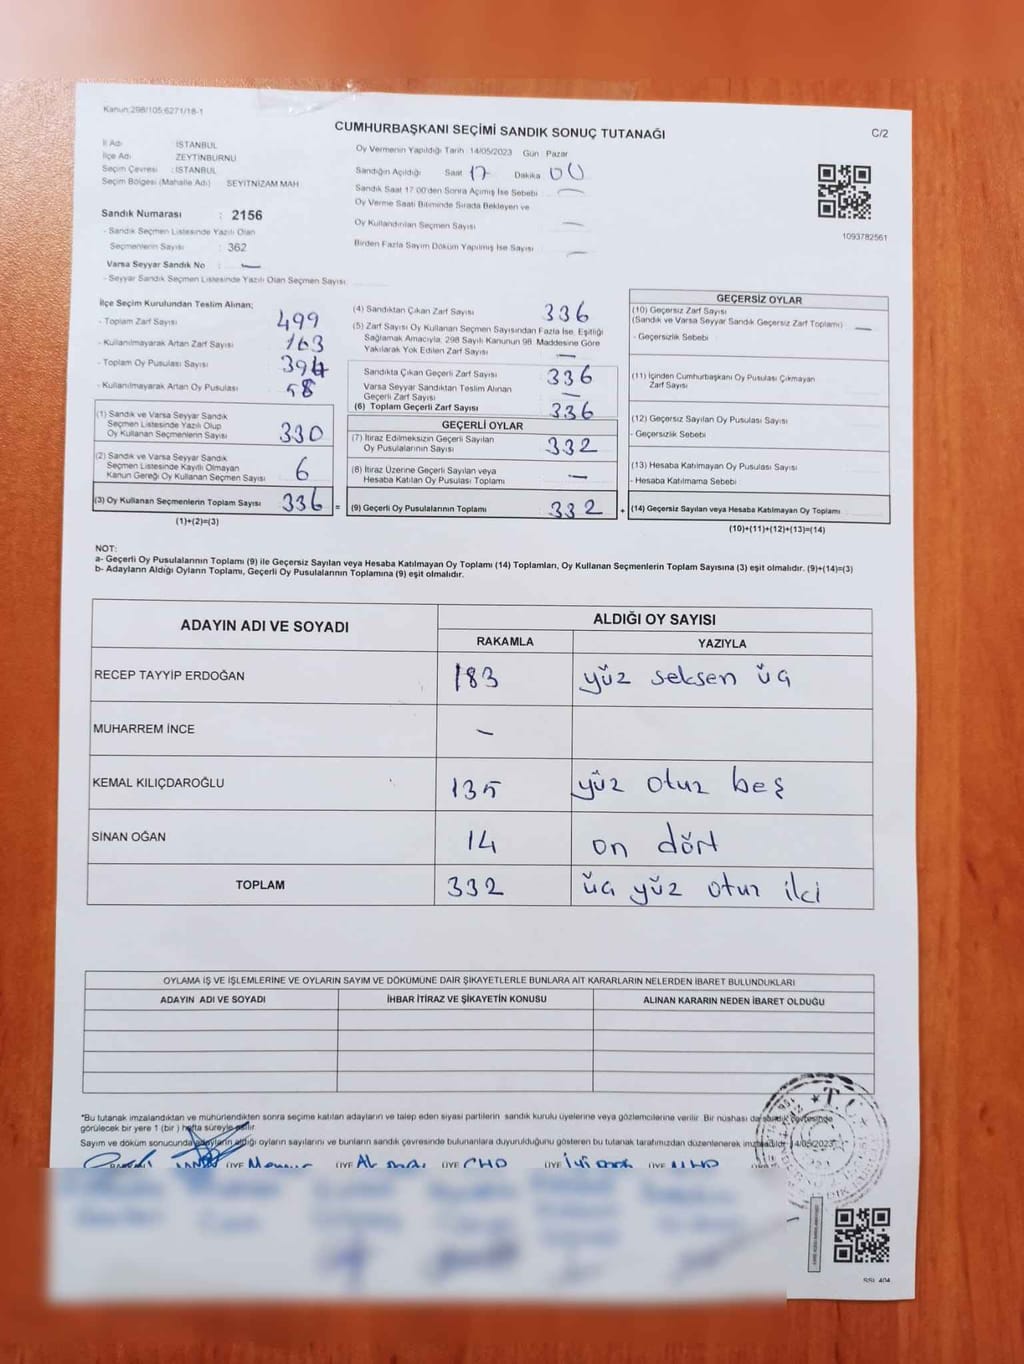 Kanun:298/105;6271/18-1
CUMHURBAŞKANI SEÇİMİ SANDIK SONUÇ TUTANAĞI
C/2
İl Adı : İSTANBUL
İlçe Adı : ZEYTİNBURNU
Seçim Çevresi : İSTANBUL
Seçim Bölgesi (Mahalle Adı) : SEYİTNİZAM MAH
Sandık Numarası : 2156
- Sandık Seçmen Listesinde Yazılı Olan
Seçmenlerin Sayısı : 362
Varsa Seyyar Sandık No : —
- Seyyar Sandık Seçmen Listesinde Yazılı Olan Seçmen Sayısı
Oy Vermenin Yapıldığı Tarih 14/05/2023 Gün Pazar
Sandığın Açıldığı Saat 17 Dakika 00
Sandık Saat 17:00'den Sonra Açımış İse Sebebi —
Oy Verme Saati Bitiminde Sırada Bekleyen ve
Oy Kullandırılan Seçmen Sayısı —
Birden Fazla Sayım Döküm Yapılmış İse Sayısı —
1093782561
İlçe Seçim Kurulundan Teslim Alınan;
- Toplam Zarf Sayısı 499
- Kullanılmayarak Artan Zarf Sayısı 163
- Toplam Oy Pusulası Sayısı 394
- Kullanılmayarak Artan Oy Pusulası 58
(1) Sandık ve Varsa Seyyar Sandık
Seçmen Listesinde Yazılı Olup
Oy Kullanan Seçmenlerin Sayısı 330
(2) Sandık ve Varsa Seyyar Sandık
Seçmen Listesinde Kayıtlı Olmayan
Kanun Gereği Oy Kullanan Seçmen Sayısı 6
(3) Oy Kullanan Seçmenlerin Toplam Sayısı 336
(1)+(2)=(3)
(4) Sandıktan Çıkan Zarf Sayısı 336
(5) Zarf Sayısı Oy Kullanan Seçmen Sayısından Fazla İse, Eşitliği
Sağlamak Amacıyla, 298 Sayılı Kanunun 98. Maddesine Göre
Yakılarak Yok Edilen Zarf Sayısı —
Sandıkta Çıkan Geçerli Zarf Sayısı 336
Varsa Seyyar Sandıktan Teslim Alınan
Geçerli Zarf Sayısı —
(6) Toplam Geçerli Zarf Sayısı 336
GEÇERLİ OYLAR
(7) İtiraz Edilmeksizin Geçerli Sayılan
Oy Pusulalarının Sayısı 332
(8) İtiraz Üzerine Geçerli Sayılan veya
Hesaba Katılan Oy Pusulası Toplamı —
= (9) Geçerli Oy Pusulalarının Toplamı 332
GEÇERSİZ OYLAR
(10) Geçersiz Zarf Sayısı
(Sandık ve Varsa Seyyar Sandık Geçersiz Zarf Toplamı) —
- Geçersizlik Sebebi
(11) İçinden Cumhurbaşkanı Oy Pusulası Çıkmayan
Zarf Sayısı
(12) Geçersiz Sayılan Oy Pusulası Sayısı
- Geçersizlik Sebebi
(13) Hesaba Katılmayan Oy Pusulası Sayısı
- Hesaba Katılmama Sebebi
+ (14) Geçersiz Sayılan veya Hesaba Katılmayan Oy Toplamı
(10)+(11)+(12)+(13)=(14)
NOT:
a- Geçerli Oy Pusulalarının Toplamı (9) ile Geçersiz Sayılan veya Hesaba Katılmayan Oy Toplamı (14) Toplamları, Oy Kullanan Seçmenlerin Toplam Sayısına (3) eşit olmalıdır. (9)+(14)=(3)
b- Adayların Aldığı Oyların Toplamı, Geçerli Oy Pusulalarının Toplamına (9) eşit olmalıdır.
ADAYIN ADI VE SOYADI
ALDIĞI OY SAYISI
RAKAMLA YAZIYLA
RECEP TAYYİP ERDOĞAN 183 yüz seksen üç
MUHARREM İNCE —
KEMAL KILIÇDAROĞLU 135 yüz otuz beş
SİNAN OĞAN 14 on dört
TOPLAM 332 üç yüz otuz iki
OYLAMA İŞ VE İŞLEMLERİNE VE OYLARIN SAYIM VE DÖKÜMÜNE DAİR ŞİKAYETLERLE BUNLARA AİT KARARLARIN NELERDEN İBARET BULUNDUKLARI
ADAYIN ADI VE SOYADI İHBAR İTİRAZ VE ŞİKAYETİN KONUSU ALINAN KARARIN NEDEN İBARET OLDUĞU
*Bu tutanak imzalandıktan ve mühürlendikten sonra seçime katılan adayların ve talep eden siyasi partilerin sandık kurulu üyelerine veya gözlemcilerine verilir. Bir nüshası da sandık çevresinde
görülecek bir yere 1 (bir) hafta süreyle asılır.
Sayım ve döküm sonucunda adayların aldığı oyların sayılarını ve bunların sandık çevresinde bulunanlara duyurulduğunu gösteren bu tutanak tarafımızdan düzenlenerek imzalandı. 14/05/2023
ÜYE Memur ÜYE Ak parti ÜYE CHP ÜYE İyi parti ÜYE MHP
T.C.
SSI 404